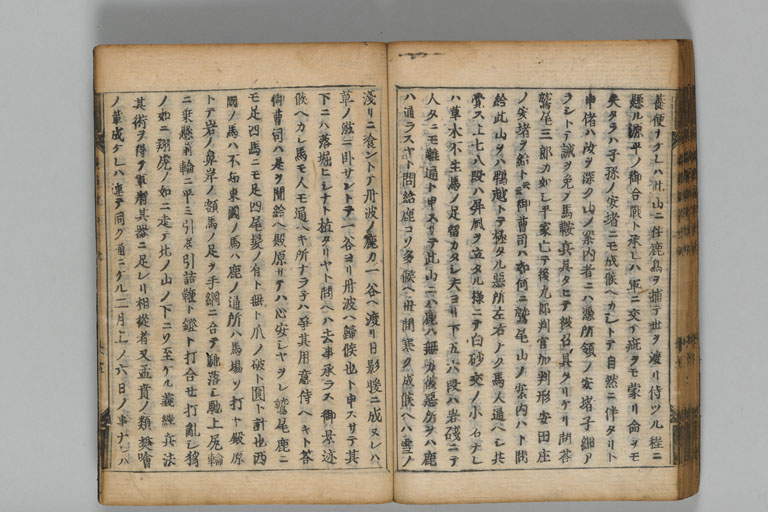 養便ナケレハ此山ニ住鹿鳥ヲ捕テ世ヲ渡リ侍ツル程ニ
懸ル源平ノ御合戦ト承レハ軍ニ交テ疵ヲモ蒙リ命ヲモ
失タラハ子孫ノ安堵ニモ成候ヘカシトテ自然ニ伴タリト
申偖ハ汝ヲ深ク山ノ案内者ニハ憑所領ノ安堵子細ア
ラシトテ誠ヲ免ノ馬鞍具タヒテ被召具タリケリ問答
鷲尾三郎カ如シ平家亡テ後九郎判官加判形安田庄
ノ安堵ヲ給ト御曹司ハ如何ニ鷲尾山ノ案内ハト問
給此山ヲハ鵯越トテ極タル悪所左右ナク馬人通ヘシ共
覚ス上七八段ハ屏風ヲ立タル様ニテ白砂交ノ小石ナレ
ハ草木不生馬ノ足留カタシ夫ヨリ下五六段ハ岩礒ニテ
人タニモ難通ト申スサテ此山ニハ鹿ハ無カ彼悪所ヲハ鹿
ハ通ラスヤト問給鹿コソ多候ヘ世間寒ク成候ヘハ雪ノ
淺リニ食ントテ丹波ノ鹿カ一谷ヘ渡リ日影暖ニ成ヌレハ
草ノ滋ニ臥サントテ一谷ヨリ丹波ヘ歸候也ト申スサテ其
下ニハ落堀ヒシナト植タリヤト問ヘハ去事承ラス御景迹
候ヘカシ馬モ人モ通ヘキ所ナラ子ハ爭其用意侍ヘキト答
御曹司ハ是ヲ聞給ヘ殿原サテハ心安シヤヲレ鷲尾鹿ニ
モ足四馬ニモ足四尾髪ノ有ト無ト爪ノ破ト圓ト計也西
國ノ馬ハ不知東國ノ馬ハ鹿ノ通所ハ馬場ソ打ヤ殿原
トテ岩ノ鼻岸ノ額馬ノ足ヲ手綱ニ合テ馳落シ馳上尻輪
ニ乗懸前輪ニ平ミ引居引詰鞭ト鐙ト打合セ打亂シ
ノ如ニ翔虎ノ如ニ走テ此ノ山ノ下ニソ至ケル義經兵法
其術ヲ得テ軍將其器ニ足レリ相從者又孟賁ノ類樊噲
ノ輩成ケレハ連テ同ク通ニケル二月上ノ六日ノ事ナレハ